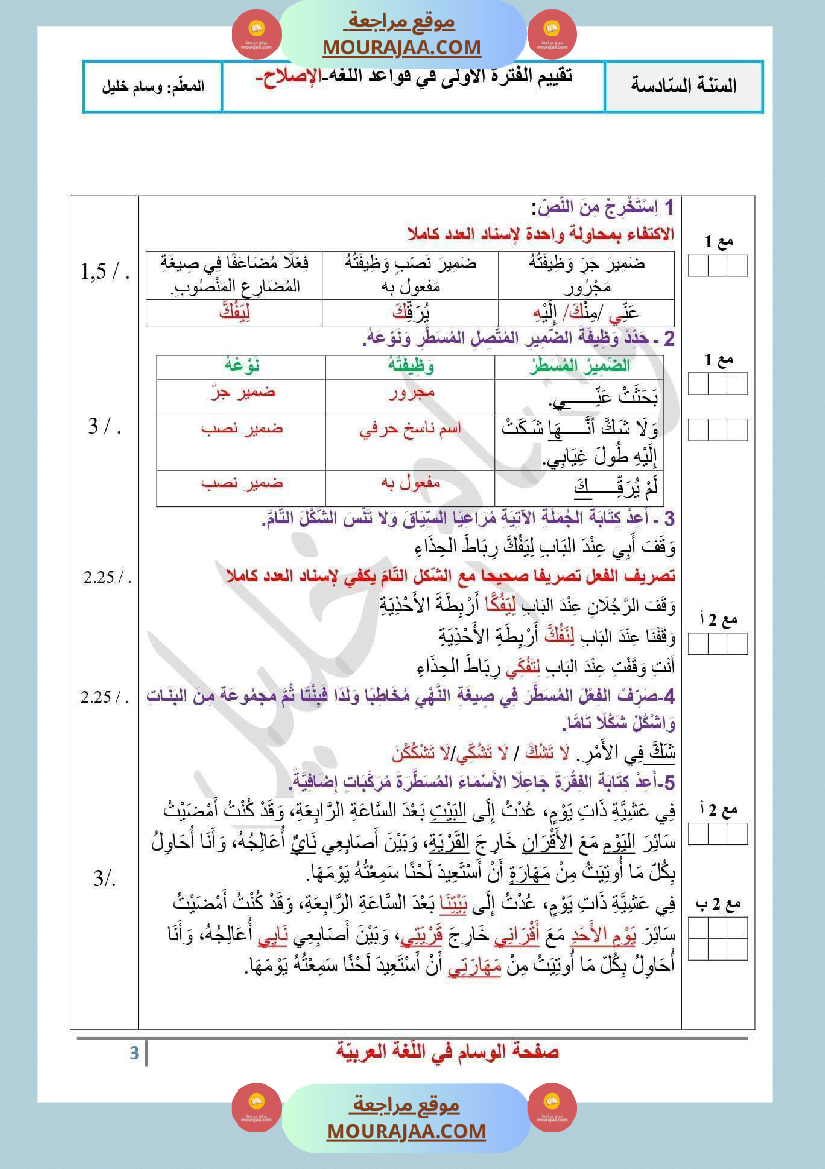 موقع مراجعة
MOURAJAA.COM
السّنة السّادسة
تقييم الفترة الأولى في قواعد اللغة-الإصلاح-
المعلّم: وسام خليل
1 اِسْتَخْرِجْ مِنَ النَّصِّ:
الاكتفاء بمحاولة واحدة لإسناد العدد كاملا
مع 1
1,5 / .
ضَمِيرَ جَرٍّ وَظِيفَتُهُ مَجْرُور
ضَمِيرَ نَصْبٍ وَظِيفَتُهُ مَفعول به
فِعْلًا مُضَاعَفًا فِي صِيغَة المُضَارِع المَنْصُوبِ.
عَنِّي /مِنْكَ/ إِلَيْهِ
يُرَقِّكَ
لِيَفُكَّ
2 ـ حَدِّدْ وَظِيفَةَ الضَّمِيرِ المُتَّصِلِ المُسَطَّرِ وَنَوْعَهُ.
مع 1
3 / .
الضَّمِيرُ المُسَطَّرُ
وَظِيفَتُهُ
نَوْعُهُ
بَحَثَتْ عَنِّـــــي.
مجرور
ضمير جرّ
وَلَا شَكَّ أنَّـــــهَا شَكَتْ
إِلَيْهِ طُولَ غِيَابِي.
اسم ناسخ حرفي
ضمير نصب
لَمْ يُرَقِّـــــكَ
مفعول به
ضمير نصب
3 ـ أَعِدْ كِتَابَةَ الجُمْلَةِ الآتِيَةِ مُرَاعِيًا السِّيَاقَ وَلا تَنْسَ الشَّكْلَ التَّامَّ.
وَقَفَ أَبِي عِنْدَ البَابِ لِيَفُكَّ رِبَاطَ الحِذَاءِ
تصريف الفعل تصريفا صحيحا مع الشّكل التّامّ يكفي لإسناد العدد كاملا
2.25 / .
وَقَفَ الرَّجُلَانِ عِنْدَ البَابِ لِيَفُكَّا أَرْبِطَةَ الأَحْذِيَةِ
مع 2 أ
وَقَفْنَا عِنْدَ البَابِ لِنَفُكَّ أَرْبِطَةِ الأَحْذِيَةِ
أَنْتِ وَقَفْتِ عِنْدَ البَابِ لِتَفُكِّي رِبَاطَ الحِذَاءِ
4-صَرِّفْ الفِعْلَ المُسَطَّرَ فِي صِيغَةِ النَّهْيِ مُخَاطِبًا وَلَدًا فَبِنْتًا ثُمَّ مَجْمُوعَة مِنَ البَنَاتِ
وَاشْكُلْ شَكْلًا تَامًّا.
2.25 / .
شَكَّ فِي الأَمْرِ. لَا تَشُكَّ / لَا تَشُكِّي/لَا تَشْكُكْنَ
5-أَعِدْ كِتَابَةَ الفِقْرَةِ جَاعِلًا الأَسْمَاءَ المُسَطَّرَةَ مُرَكَّبَاتٍ إِضَافِيَّةً.
فِي عَشِيَّةِ ذَاتِ يَوْمٍ، عُدْتُ إِلَى البَيْتِ بَعْدَ السَّاعَةِ الرَّابِعَةِ، وَقَدْ كُنْتُ أَمْضَيْتُ
سَائِرَ اليَوْمِ مَعَ الأَقْرَانِ خَارِجَ القَرْيَةِ، وَبَيْنَ أَصَابِعِي نَايٌ أُعَالِجُهُ، وَأَنَا أُحَاوِلُ
بِكُلِّ مَا أُوتِيَتُ مِنْ مَهَارَةٍ أَنْ أَسْتَعِيدَ لَحْنًا سَمِعْتُهُ يَوْمَهَا.
مع 2 أ
3/.
فِي عَشِيَّةِ ذَاتِ يَوْمٍ، عُدْتُ إِلَى بَيْتِنَا بَعْدَ السَّاعَةِ الرَّابِعَةِ، وَقَدْ كُنْتُ أَمْضَيْتُ
سَائِرَ يَوْمِ الأَحَدِ مَعَ أَقْرَانِي خَارِجَ قَرْيَتِي، وَبَيْنَ أَصَابِعِي نَايِي أُعَالِجُهُ، وَأَنَا
أُحَاوِلُ بِكُلِّ مَا أُوتِيَتُ مِنْ مَهَارَتِي أَنْ أَسْتَعِيدَ لَحْنًا سَمِعْتُهُ يَوْمَهَا.
مع 2 ب
صفحة الوسام في اللّغة العربيّة
3
موقع مراجعة
MOURAJAA.COM